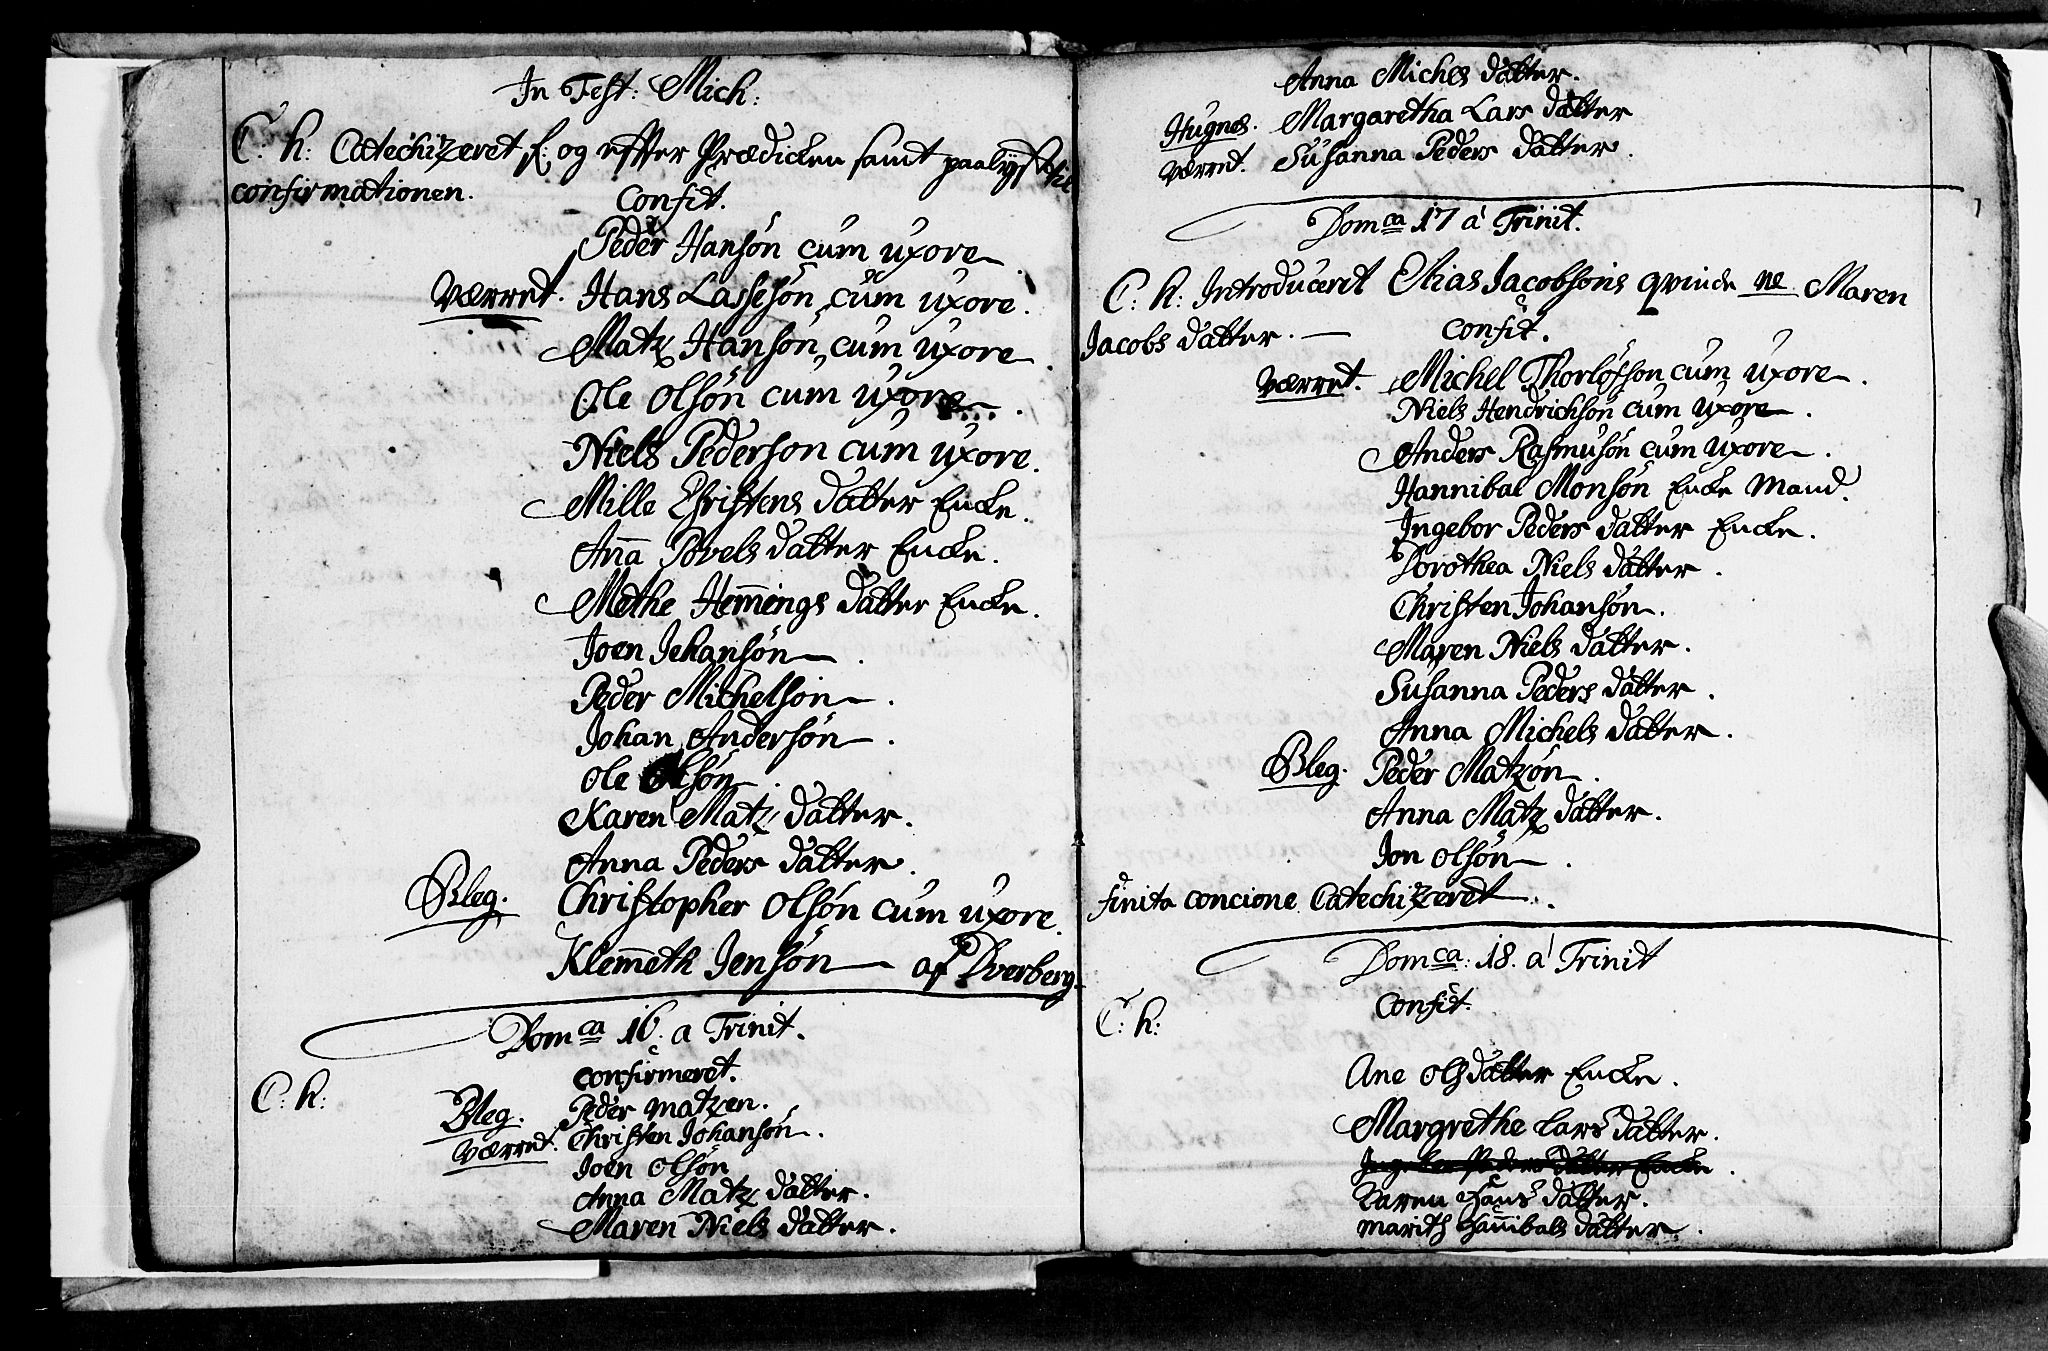 In Fest: Mich:
C. h: Catechizeret f: og effter Prædicken samt paalyst til
confirmationen.
Confit.
Peder Hansøn cum uxore
Værret. Hans Lassesøn cum uxore.
Matz Hansøn cum uxore
Ole Olsøn cum uxore.
Niels Pedersøn cum uxore.
Mille Christens datter Encke.
Aña Povels datter Encke.
Methe Hem̃ings datter Encke.
Joen Johansøn.
Peder Michelsøn.
Johan Andersøn.
Ole Olsøn.
Karen Matz datter.
Anna Peders datter.
Bleg. Christopher Olsøn cum uxore.
Klem̃eth Jensøn af Dverberg.
Dom ca 16. a Trinit.
confirmeret.
C: h:
Bleg. Peder Matzen.
Værret. Christen Johansøn.
Joen Olsøn
Anna Matz datter.
Maren Niels datter.
Anna Michels datter.
Hugnes. Margaretha Lars datter
Værret. Susanna Peders datter.
Dom ca 17 a Trinit.
C: h: Introduceret Elias Jacobsøns qvinde ne Maren
Jacobs datter.
Confit.
Værret. Michel Thorløfson cum uxore.
Niels Hendrichsøn cum uxore.
Anders Rasmusøn cum uxore.
Hannibal Monsøn Encke Mand.
Ingebor Peders datter Encke.
Dorothea Niels datter.
Christen Johansøn.
Maren Niels datter.
Susanna Peders datter.
Anna Michels datter.
Bleg. Peder Matzøn.
Anna Matz datter.
Jon Olsøn.
finita concione Catechizeret.
Dom ca: 18. a Trinit
Confit.
C: h:
Ane Olsdatter Encke.
Margrethe Lars datter.
Ingebor Peders datter Encke.
Karen Hans datter.
Marith Hañibals datter.